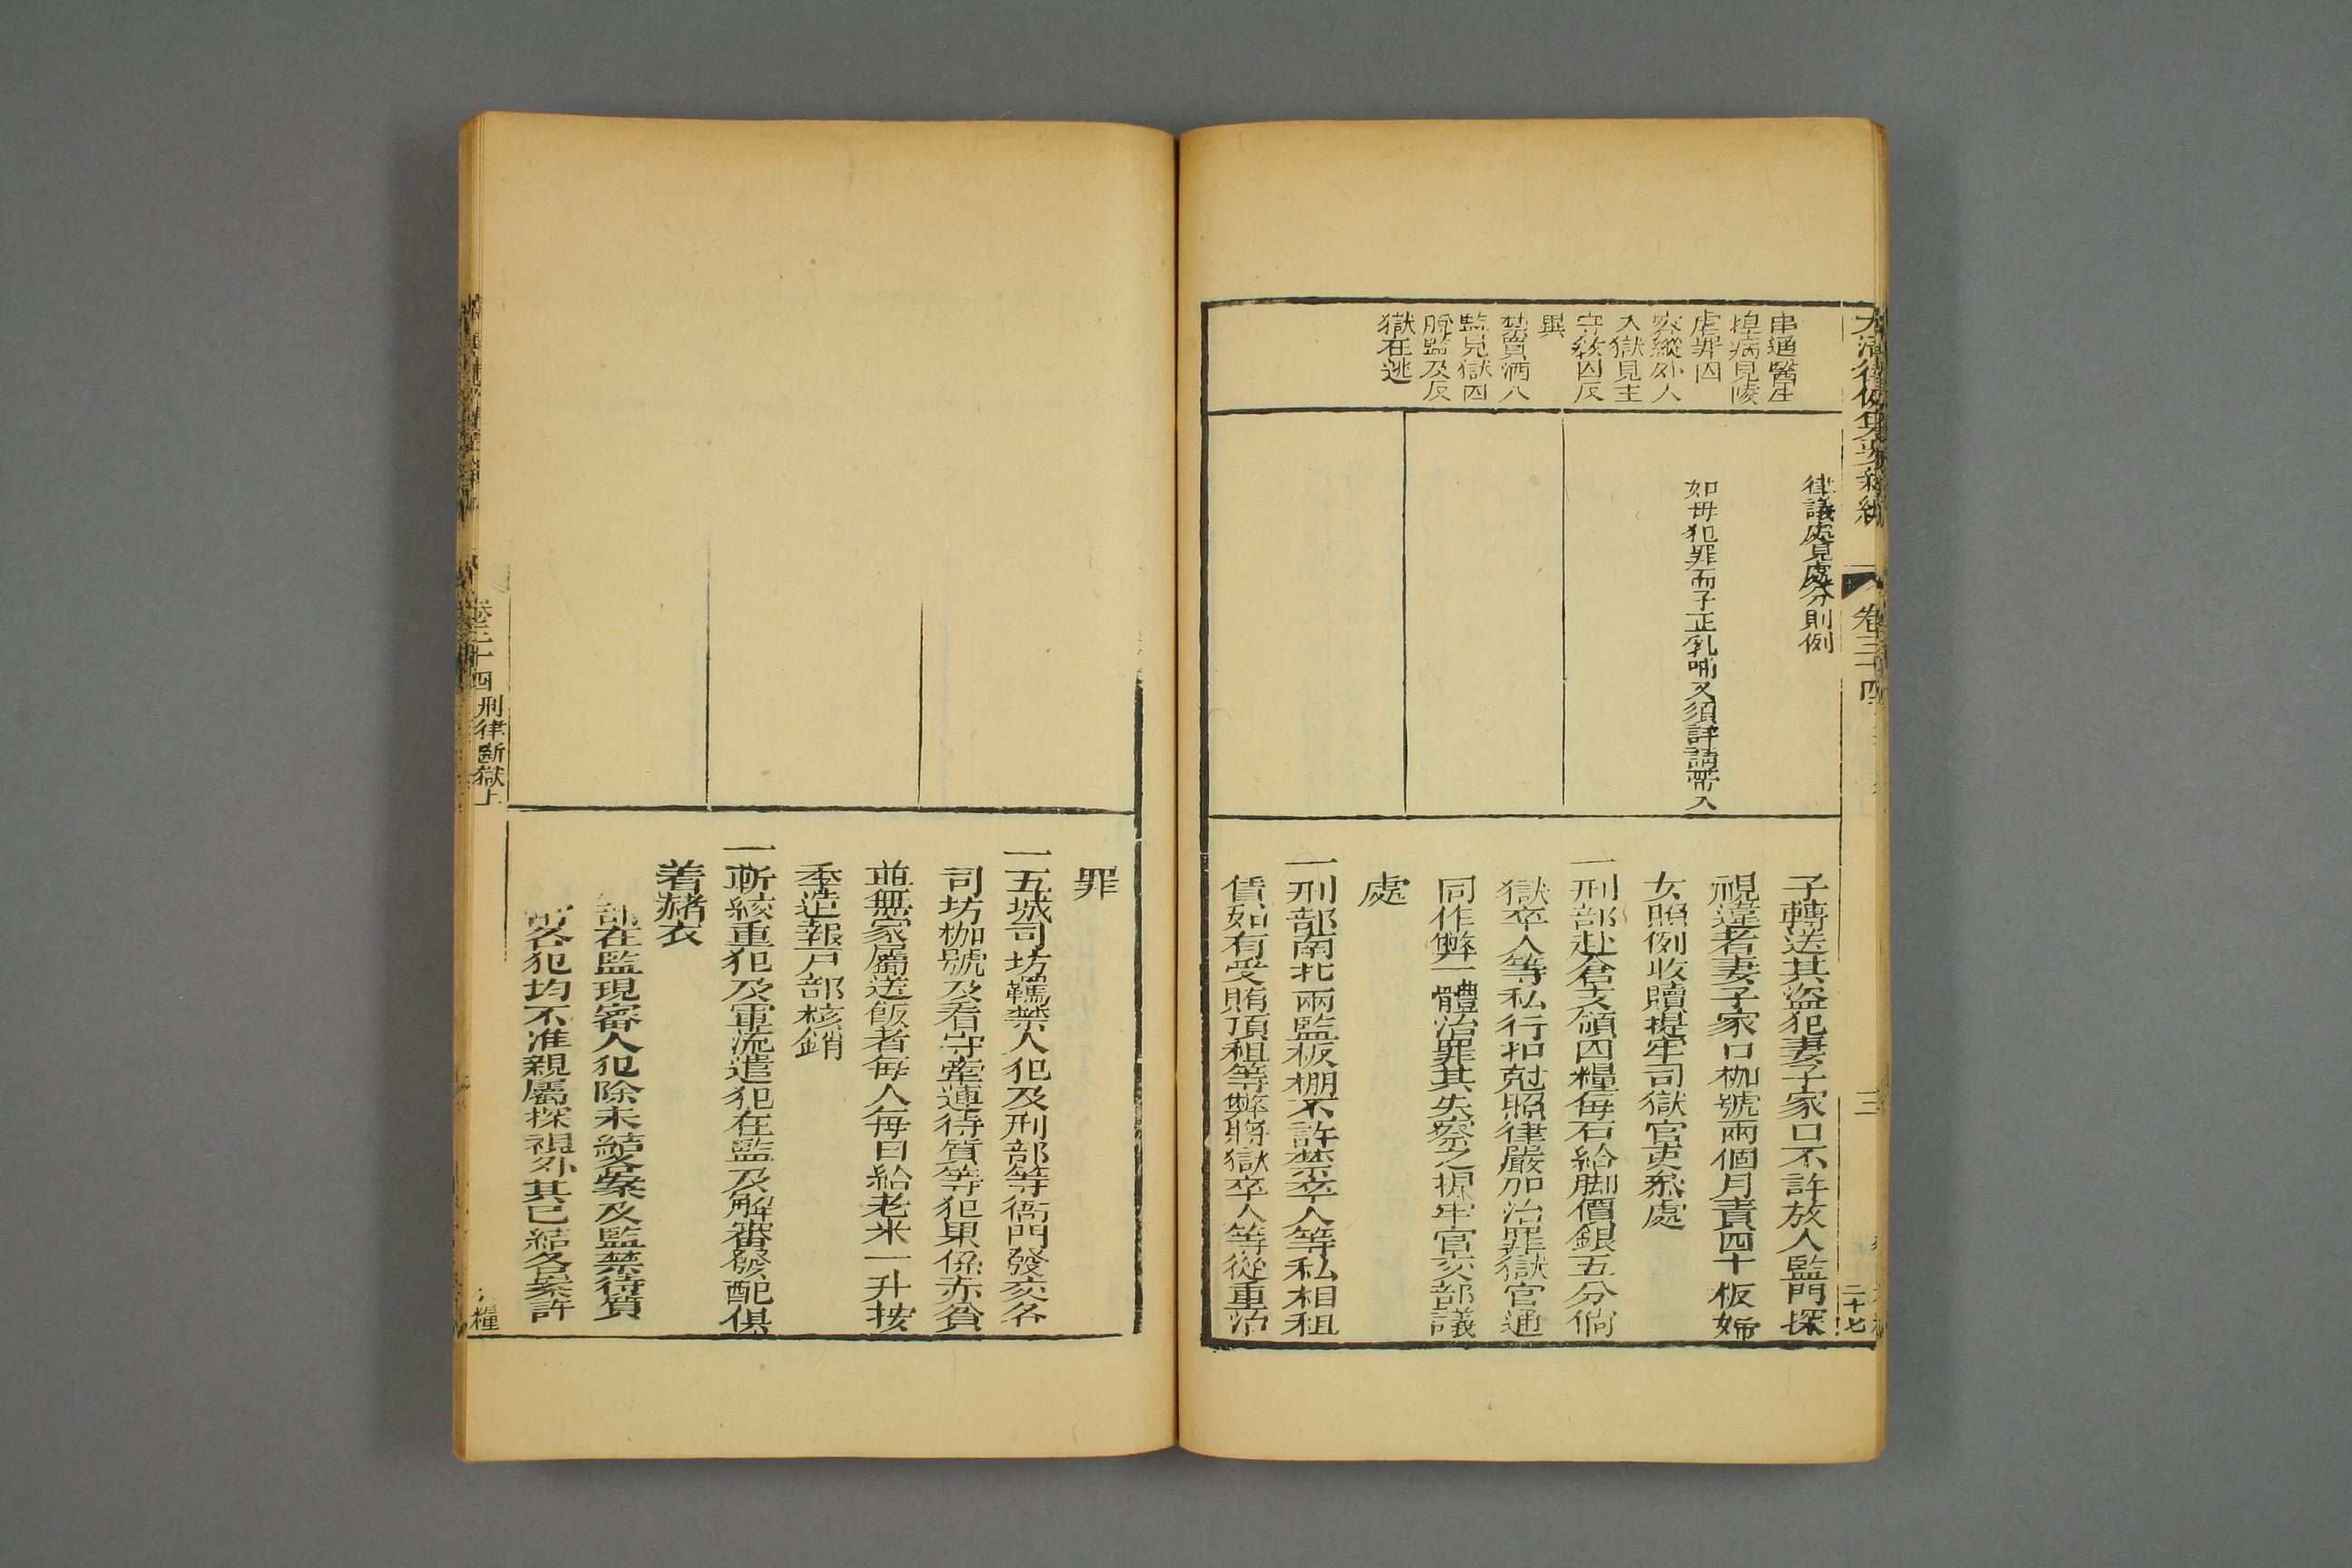 大清律例集要新編
卷三十四
二十七
串通醫生
揑病見陵
虐罪囚
容縱外人
入獄見主
守教囚反
異
禁賣酒入
監見獄囚
脫監及反
獄在逃
律議處見處分則例
如母犯罪而子正乳哺又須詳請帶入
子轉送其盜犯妻子家口不許放入監門探
視違者妻子家口枷號兩個月責四十板婦
女照例收贖提牢司獄官吏叅處
一刑部赴倉支領囚糧每石給脚價銀五分倘
獄卒人等私行扣尅照律嚴加治罪獄官通
同作弊一體治罪其失察之提牢官交部議
處
一刑部南北兩監板棚不許禁卒人等私相租
賃如有受賄頂租等弊將獄卒人等從重治
罪
一五城司坊羈禁人犯及刑部等衙門發交各
司坊枷號及看守牽連待質等犯果係赤貧
並無家屬送飯者每人每日給老米一升按
季造報戸部核銷
一斬絞重犯及軍流遣犯在監及解審發配俱
着赭衣
部在監現審人犯除未結各案及監禁待質
各犯均不准親屬探視外其已結各案許
卷三十四
刑律斷獄上
糧